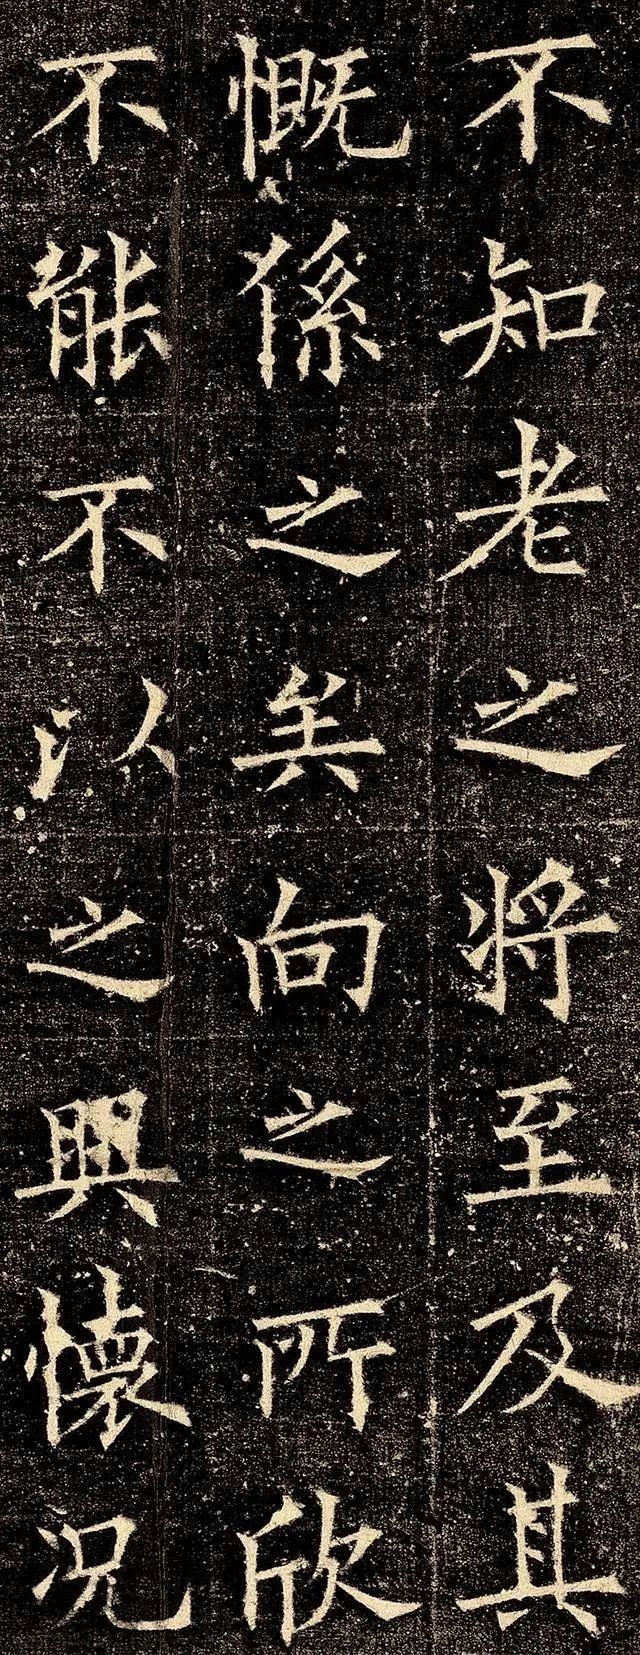 不知老之将至及其
慨係之矣向之所欣
不能不以之興懷况